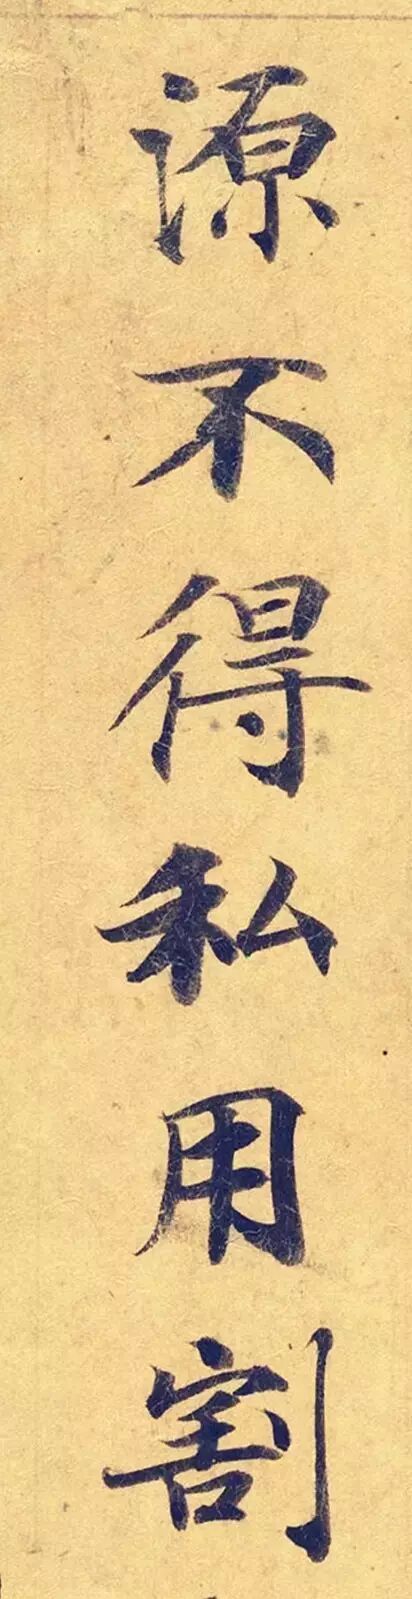 源不得私用割